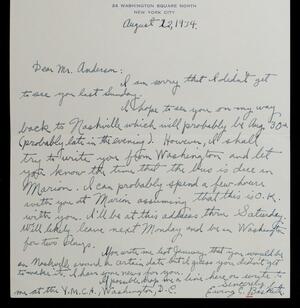 24 WASHINGTON SQUARE NORTH
NEW YORK CITY
August 22, 1934.
Dear Mr. Anderson:
I am sorry that I didn't get
to see you last Sunday.
I hope to see you on my way
back to Nashville which will probably be Aug 30th
(probably late in the evening). However, I shall
try to write you from Washington and let
you know the time that the bus is due in
Marion. I can probably spend a few hours
with you at Marion assuming that this is O.K.
with you. I'll be at this address thru Saturday.
Will likely leave next Monday and be in Washington
for two days.
You wrote me last January that you would be
in Nashville around in but I guess you didn't get
to make it. I have some news for you.
If possible drop me a line here or write to
me at the Y.M.C.A. Washington, D.C.
Sincerely,